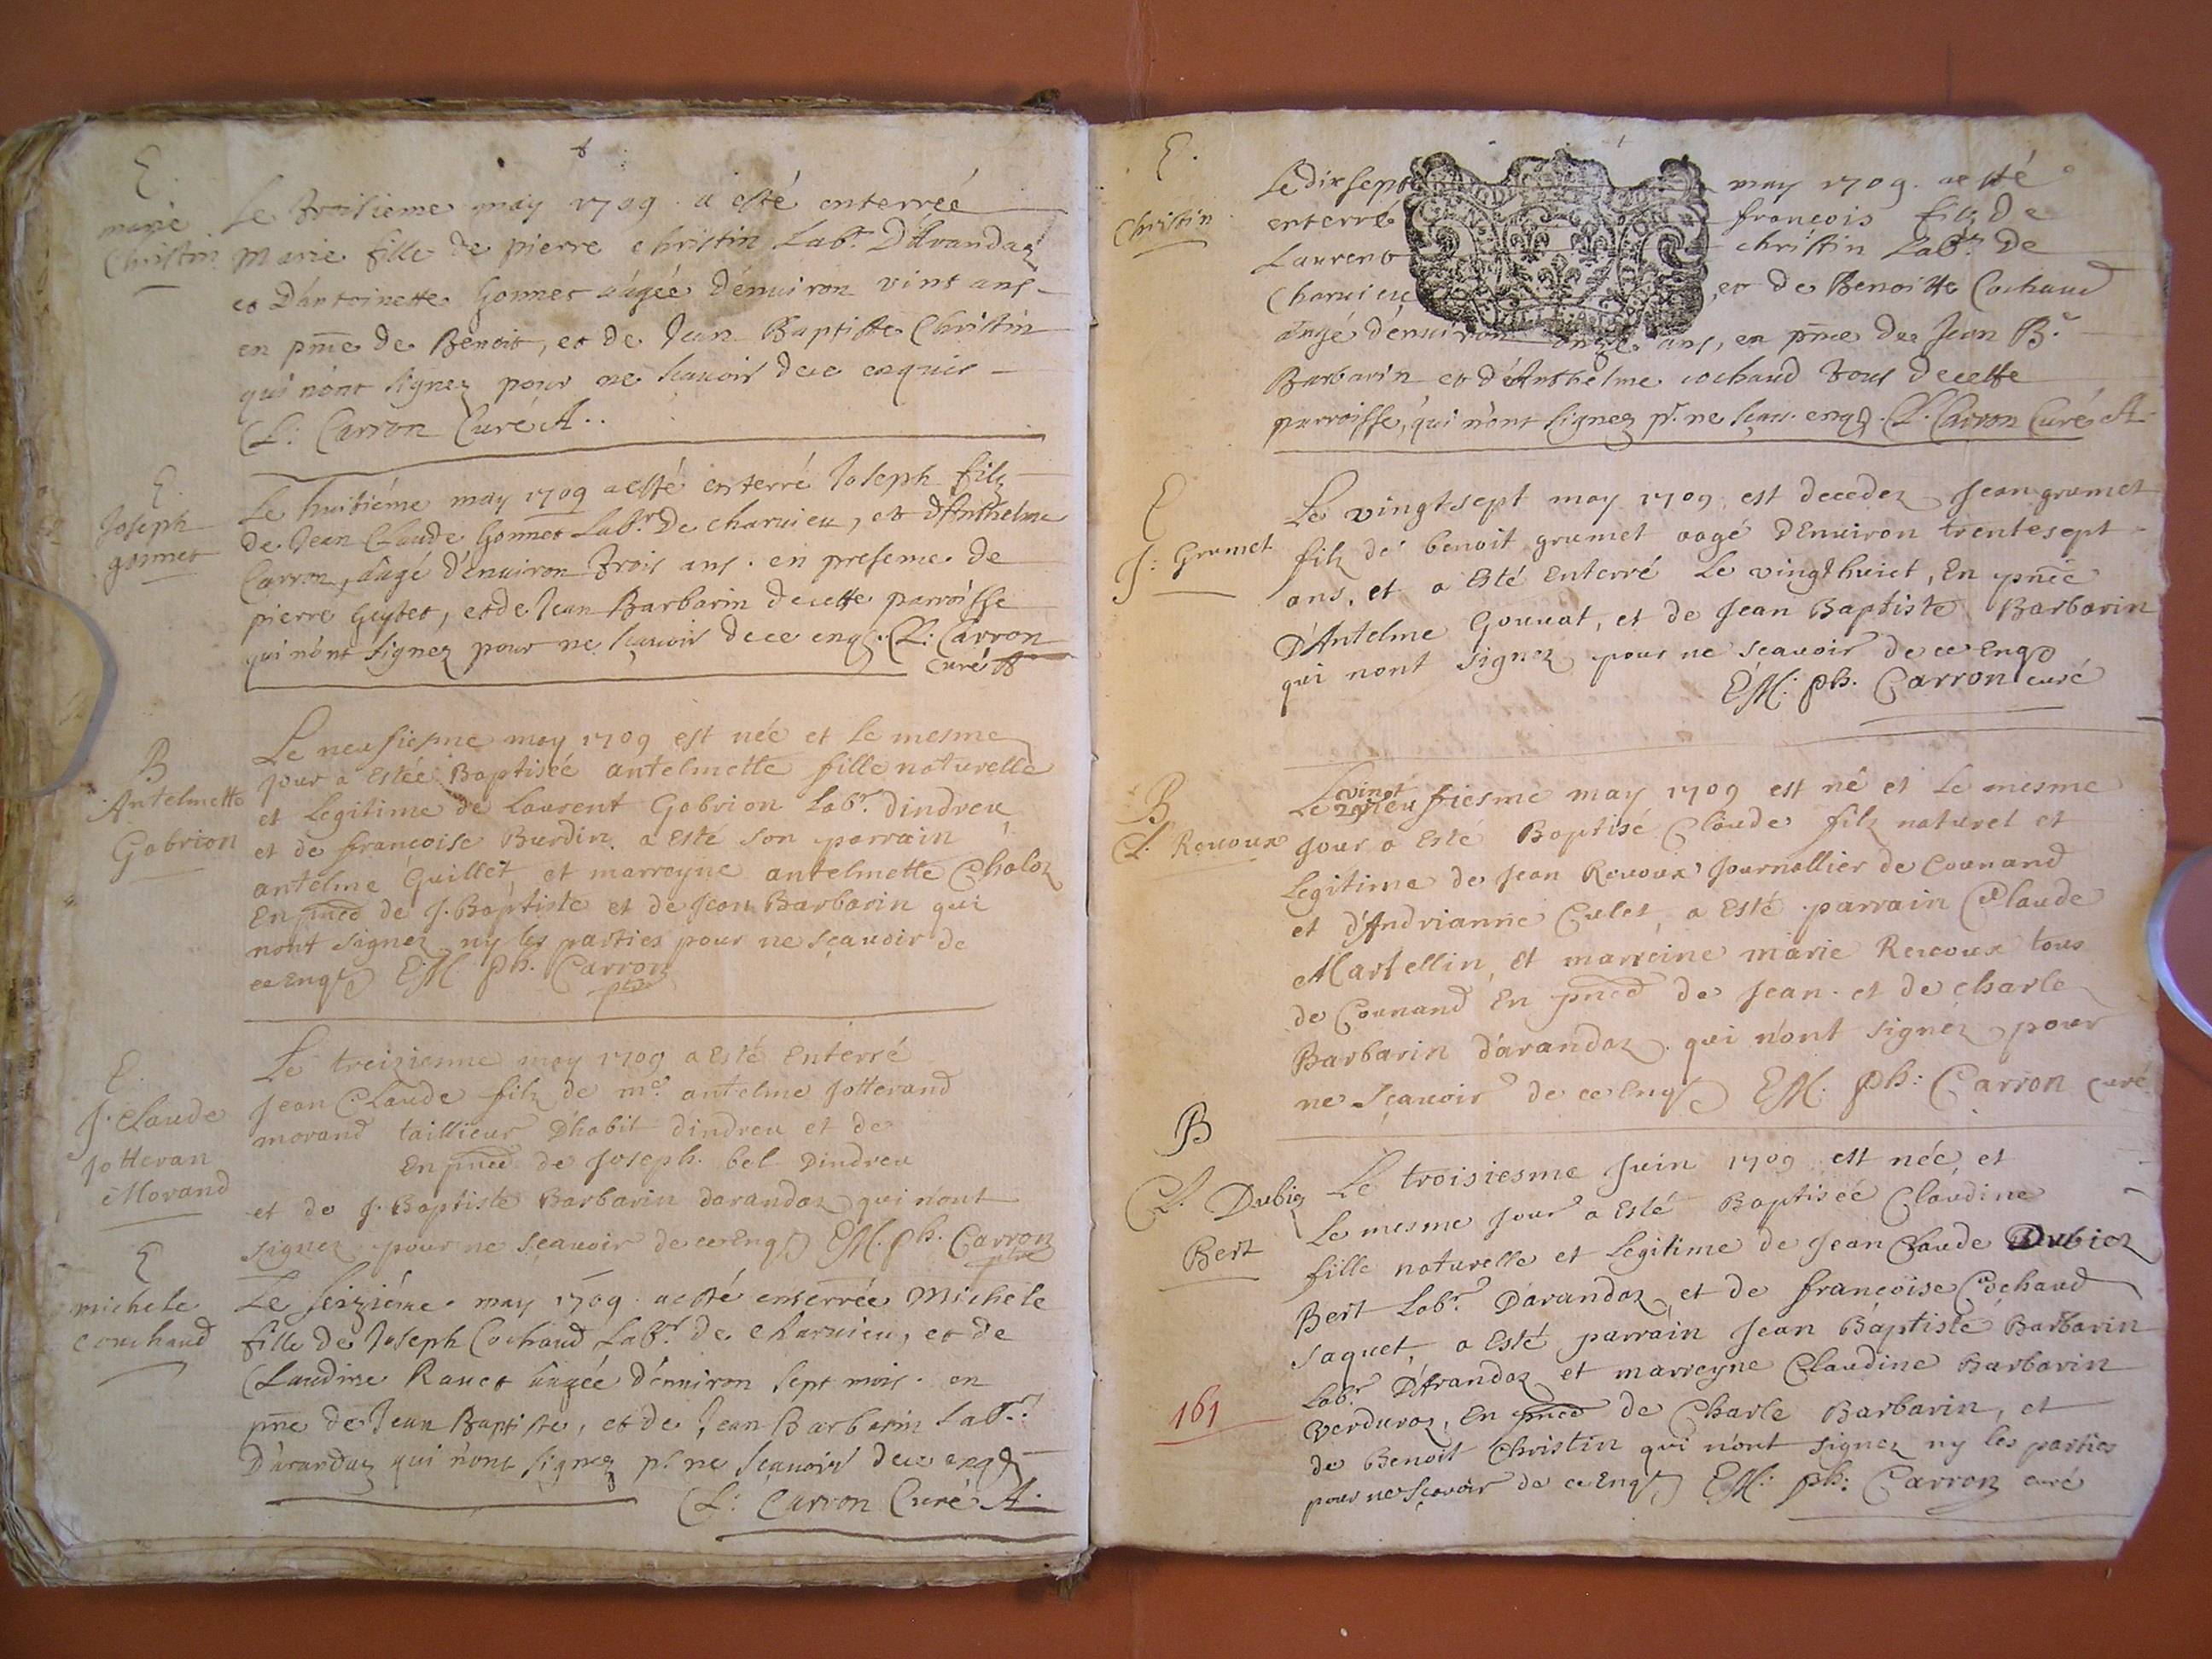 E.
marie
Christin
Le troisieme may 1709. a esté enterreé
Marie fille de pierre christin Labr. D'Arandaz
et D'antoinette Gonnet aâgée d'enuiron vint ans
en pnce de Benoit, et de Jean Baptiste Christin
qui n'ont signez pour ne scauoir dece enquis
Cl: Carron Curé A..
E.
Joseph
gonnet
Le huitiéme may 1709 a esté enterré Joseph filz
de Jean Claude Gonnet Labr. De charuieu, et d'Anthelme
Carron, aâgé d'enuiron trois ans. en presence de
pierre Geytet, et de Jean Barbarin decette parroisse
qui n'ont signez pour ne sçauoir dece enqs. Cl: Carron
curé A
B
Antelmette
Gabrion
Le neufiesme may 1709 est née et le mesme
jour a estée Baptiseé antelmette fille naturelle
et Legitime de Laurent Gabrion Labr. dindreu
et de françoise Burdin. a esté son parrain
antelme Quillet et marreyne antelmette Chaloz
En pnce de J. Baptiste et de Jean Barbarin qui
nont signez ny les parties pour ne sçauoir de
ce Enqs EM. Ph. Carron
ptre
E.
J. Claude
Jotteran
Morand
Le treizieme may 1709 a esté Enterré
Jean Claude filz de me. antelme Jotterand
morand taillieur D'habit dindreu et de
En pnce de Joseph. bel Dindreu
et de J. Baptiste Barbarin darandaz qui n'ont
signez pour ne sçauoir de ce Enqs EM. Ph. Carron
ptre
E
michele
couchaud
Le seiziéme may 1709. a esté enterrée Michele
fille de Joseph Cochaud Labr. de charuieu, et de
Claudine Rauet aâgée d'énuiron sept mois. en
pnce de Jean Baptiste, et de Jean Barbarin Labrs.
D'arandaz qui n'ont signez pr. ne sçauoir dece enqs
Cl: Carron Curé A.
E.
Christin
Le dix sept may 1709. a esté
enterré francois filz De
Laurent christin Labr. De
Charuieu, et de Benoitte Cochaud
aâgé d'énuiron onze ans, en pnce de Jean Be.
Barbarin et d'Anthelme cochaud tous decette
parroisse, qui n'ont signez pr. ne sçau. enqs. Cl. Carron Curé A.
E
J: Grumet
Le vingtsept may 1709 est decedez Jean grumet
filz de benoit grumet aagé D'Enuiron trentesept
ans, et a Esté Enterré Le vingthuict, En pnce
D'Antelme Gouuat, et de Jean Baptiste Barbarin
qui nont signez pour ne sçauoir de ce Enqs
EM: Ph. Carron curé
B
Cl. Reuoux
vingt
Le 29 neufiesme may 1709 est né et Le mesme
Jour a Esté Baptisé Claude filz naturel et
Legitime de Jean Reuoux Journallier de Counand
et d'Andrianne Culet, a Esté parrain Claude
Martellin, et marreine marie Reuoux tous
de Counand En pnce de Jean. et de charle
Barbarin d'arandaz. qui n'ont signez pour
ne sçauoir de ce Enqs EM: Ph: Carron curé
B
Cl. Dubiez
Bert
Le troisiesme Juin 1709 est née et
Le mesme Jour a Esté Baptiseé Claudine
fille naturelle et Legitime de Jean Claude Dubiez
Bert Labr. D'arandaz et de françoise Cochaud
Jaquet, a Esté parrain Jean Baptiste Barbarin
Labr. D'Arandaz et marreyne Claudine Barbarin
Verduraz, En pnce de Charle Barbarin, et
de Benoit Christin qui n'ont signez ny les parties
pour ne sçauoir de ce Enqs EM: Ph: Carron curé
161